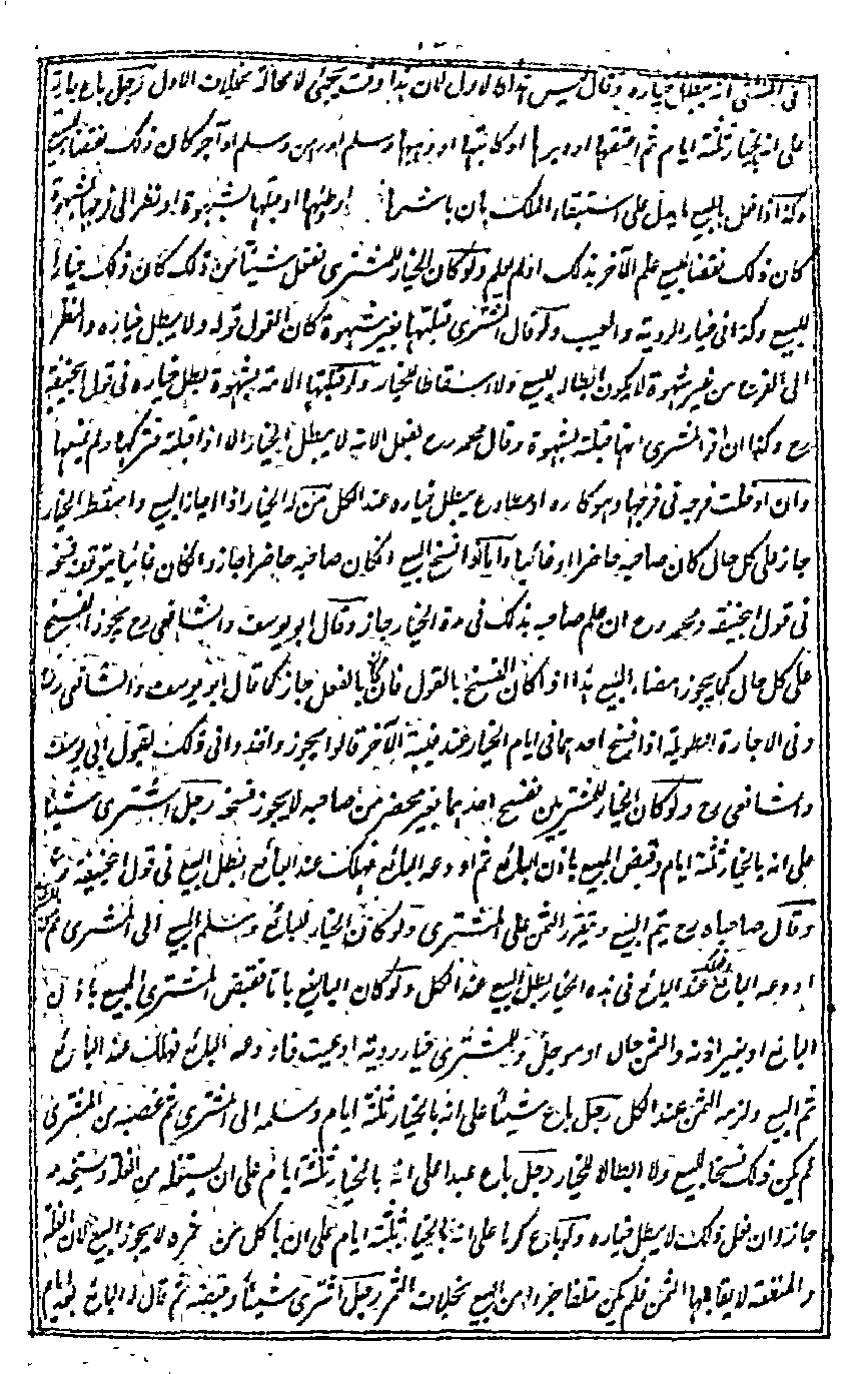 في المنتقى انه يبطل خياره وقال ليس هذا كالاول لان هذا وقت يجئ لا محالة بخلاف الاول رجل باع جارية
على انه بالخيار ثلثة ايام ثم اعتقها او دبرها او كاتبها او زوجها وسلم او رهن وسلم او آجر كان ذلك نقضا للبيع
وكذا اذا فعل بالمبيع ما يدل على استبقاء الملك بان باشرها او وطئها او قبلها بشهوة او نظر الى فرجها بشهوة
كان ذلك نقضا للبيع علم الآخر بذلك او لم يعلم ولو كان الخيار للمشترى ففعل شيئا من ذلك كان ذلك
للبيع وكذا في خيار الروية والعيب ولو قال المشترى قبلتها بغير شهوة كان القول قوله ولا يبطل خياره والنظر
الى الفرج من غير شهوة لا يكون ابطالا للبيع ولا اسقاطا للخيار ولو قبلتها الامة بشهوة بطل خياره في قول ابيحنيفة
رح وكذا ان اقر المشترى انها قبلته بشهوة وقال محمد رح بفعل الامة لا يبطل الخيار الا اذا قبلته فتركها ولم يمنعها
وان ادخلت فرجه في فرجها وهو كاره او مطاوع يبطل خياره عند الكل من له الخيار اذا اجاز البيع واسقط الخيار
جاز على كل حال كان صاحبه حاضرا او غائبا واما اذا فسخ البيع ان كان صاحبه حاضرا جاز وان كان غائبا يتوقف فسخه
في قول ابيحنيفة ومحمد رح ان علم صاحبه بذلك في مدة الخيار جاز وقال ابو يوسف والشافعي رح يجوز الفسخ
على كل حال كما يجوز امضاء البيع هذا اذا كان الفسخ بالقول فان كان بالفعل جاز كما قال ابو يوسف والشافعي رح
وفي الاجارة الطويلة اذا فسخ احدهما في ايام الخيار عند غيبة الآخر قالوا يجوز واخذوا في ذلك بقول ابي يوسف
والشافعي رح ولو كان الخيار للمشتريين ففسخ احدهما بغير محضر من صاحبه لا يجوز فسخه رجل اشترى شيئا
على انه بالخيار ثلثة ايام وقبض المبيع باذن البائع ثم اودعه البائع فهلك عند البائع بطل البيع في قول ابيحنيفة رح
وقال صاحباه رح يتم البيع ويتقرر الثمن على المشترى ولو كان الخيار للبائع وسلم المبيع الى المشترى ثم
اودعه البائع فهلك عند البائع في مدة الخيار بطل البيع عند الكل ولو كان البيع باتا فقبض المشترى المبيع باذن
البائع او بغير اذنه والثمن حال او موجل وللمشترى خيار روية او عيب فاودعه البائع فهلك عند البائع
تم البيع ولزمه الثمن عند الكل رجل باع شيئا على انه بالخيار ثلثة ايام وسلمه الى المشترى ثم غصبه من المشترى
لم يكن ذلك فسخا للبيع ولا ابطالا للخيار رجل باع عبدا على انه بالخيار ثلثة ايام على ان يستغله ويستخدمه
جاز وان فعل ذلك لا يبطل خياره ولو باع كرما على انه بالخيار ثلثة ايام على ان ياكل من ثمره لا يجوز البيع لان الغلة
والمنفعة لا يقابلها الثمن فلم يكن متلفا جزءا من المبيع بخلاف الثمر رجل اشترى شيئا وقبضه ثم قال له البائع بعد ايام